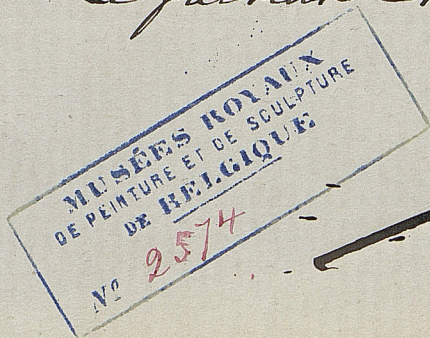 MUSÉES ROYAUX
DE PEINTURE ET DE SCULPTURE
DE BELGIQUE
Nº 2574